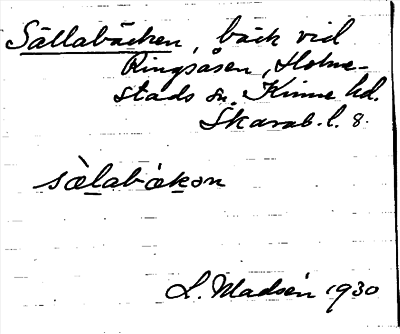 Sällabäcken, bäck vid
Ringsåsen, Holme-
stads sn. Kinne hd.
Skarab. l. 8.
sä̀labäkən
L. Madsén 1930